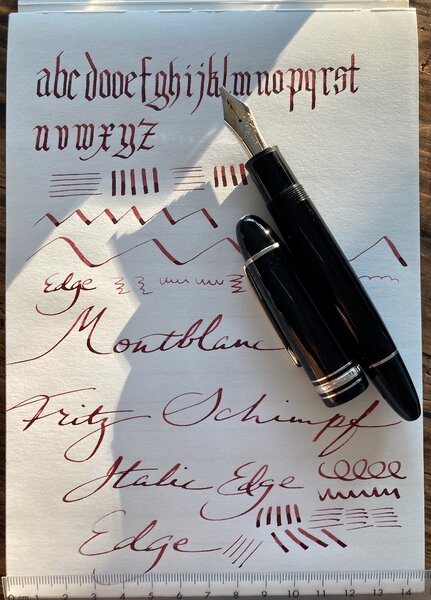 abcdooefghijklmnopqrst
uvwxyz
Edge
Montblanc
Fritz Schimpf
Italic Edge
Edge
0 cm 1 2 3 4 5 6 7 8 9 10 11 12 13 14